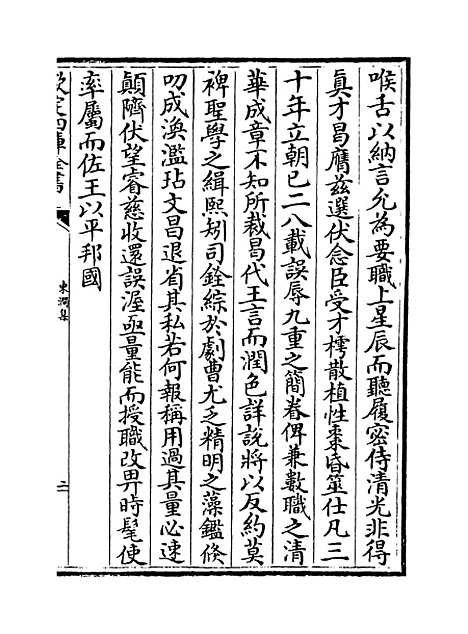 喉舌以納言允為要職上星辰而聽履密侍清光非得
真才曷膺兹選伏念臣受才樗散植性棗昏筮仕凡三
十年立朝已二八載誤辱九重之簡眷俾兼數職之清
華成章不知所裁曷代王言而潤色詳說將以反約莫
裨聖學之緝熙矧司銓綜於劇曹尤乏精明之藻鑑倐
叨成渙濫玷文昌退省其私若何報稱用過其量必速
顛隮伏望睿慈收還誤渥亟量能而授職改畀時髦使
率屬而佐王以平邦國
欽定四庫全書
東澗集
二